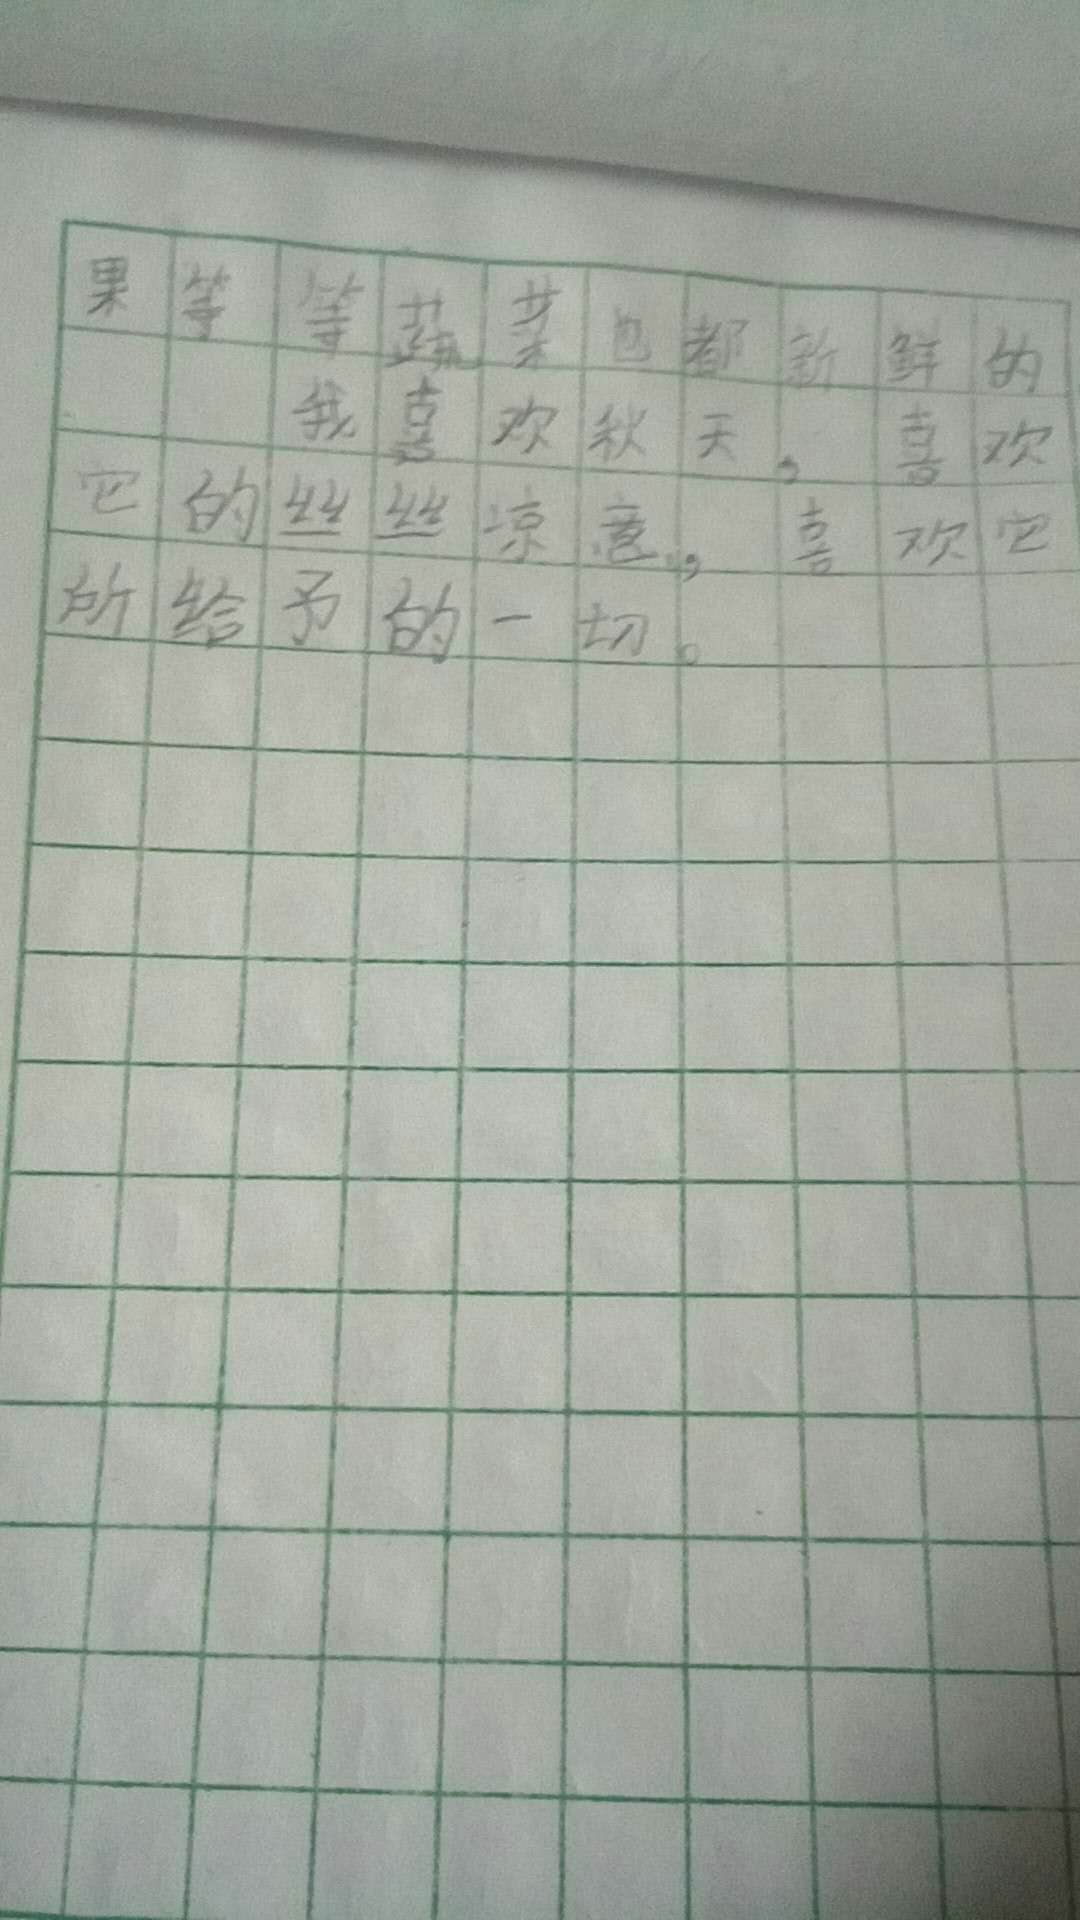 果等等蔬菜也都新鲜的
我喜欢秋天，喜欢
它的丝丝凉意，喜欢它
所给予的一切。